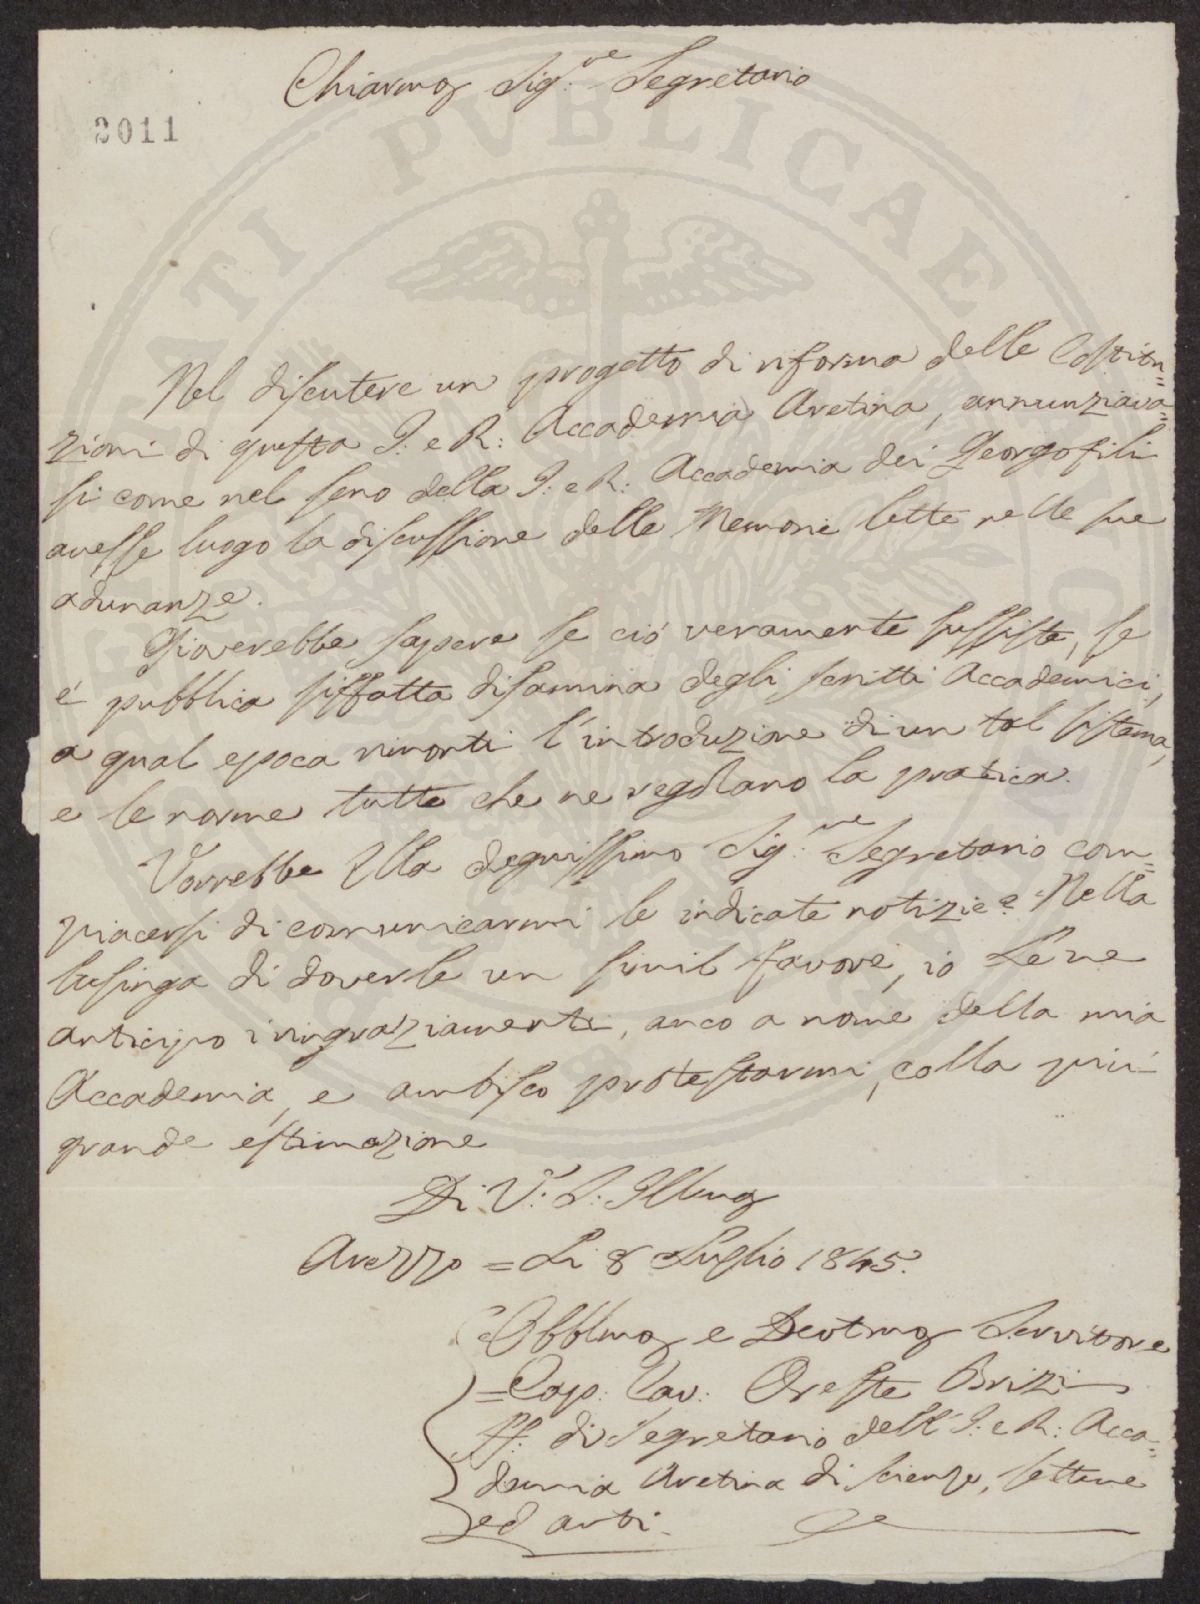 Chiarmo Sig.re Segretario
2011
Nel discutere un progetto di riforma delle Costitu=
zioni di questa I: e R: Accademia Aretina, annunziava=
si come nel seno della I: e R: Accademia dei Georgofili
avesse luogo la discussione delle Memorie lette nelle sue
adunanze.
Gioverebbe sapere se ciò veramente sussiste, se
è pubblica siffatta disamina degli scritti Accademici,
a qual epoca rimonti l'introduzione di un tal sistema,
e le norme tutte che ne regolano la pratica.
Vorrebbe Ella degnissimo Sig.re Segretario com=
piacersi di comunicarmi le indicate notizie? Nella
lusinga di doverle un simil favore, io Le ne
anticipo i ringraziamenti, anco a nome della mia
Accademia, e ambisco protestarmi, colla più
grande estimazione
Di V: S: Illma
Arezzo = Li 8 Luglio 1845.
Obblmo e Devtmo Servitore
=Cap: Cav: Oreste Brizi
ff: di Segretario dell'I: e R: Acca=
demia Aretina di scienze, lettere
ed arti.
PVBLICAE